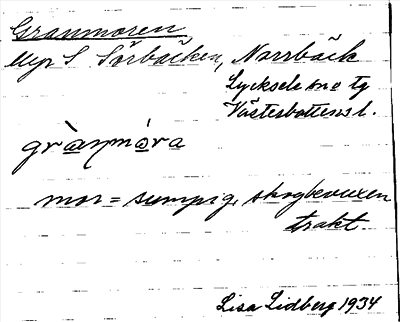 Granmoren
Myr S Sörbäcken, Norrbäck
Lycksele sn o tg
Västerbottens l.
grànmóra
mor = sumpig, skogbevuxen
trakt
Lisa Lidberg 1934